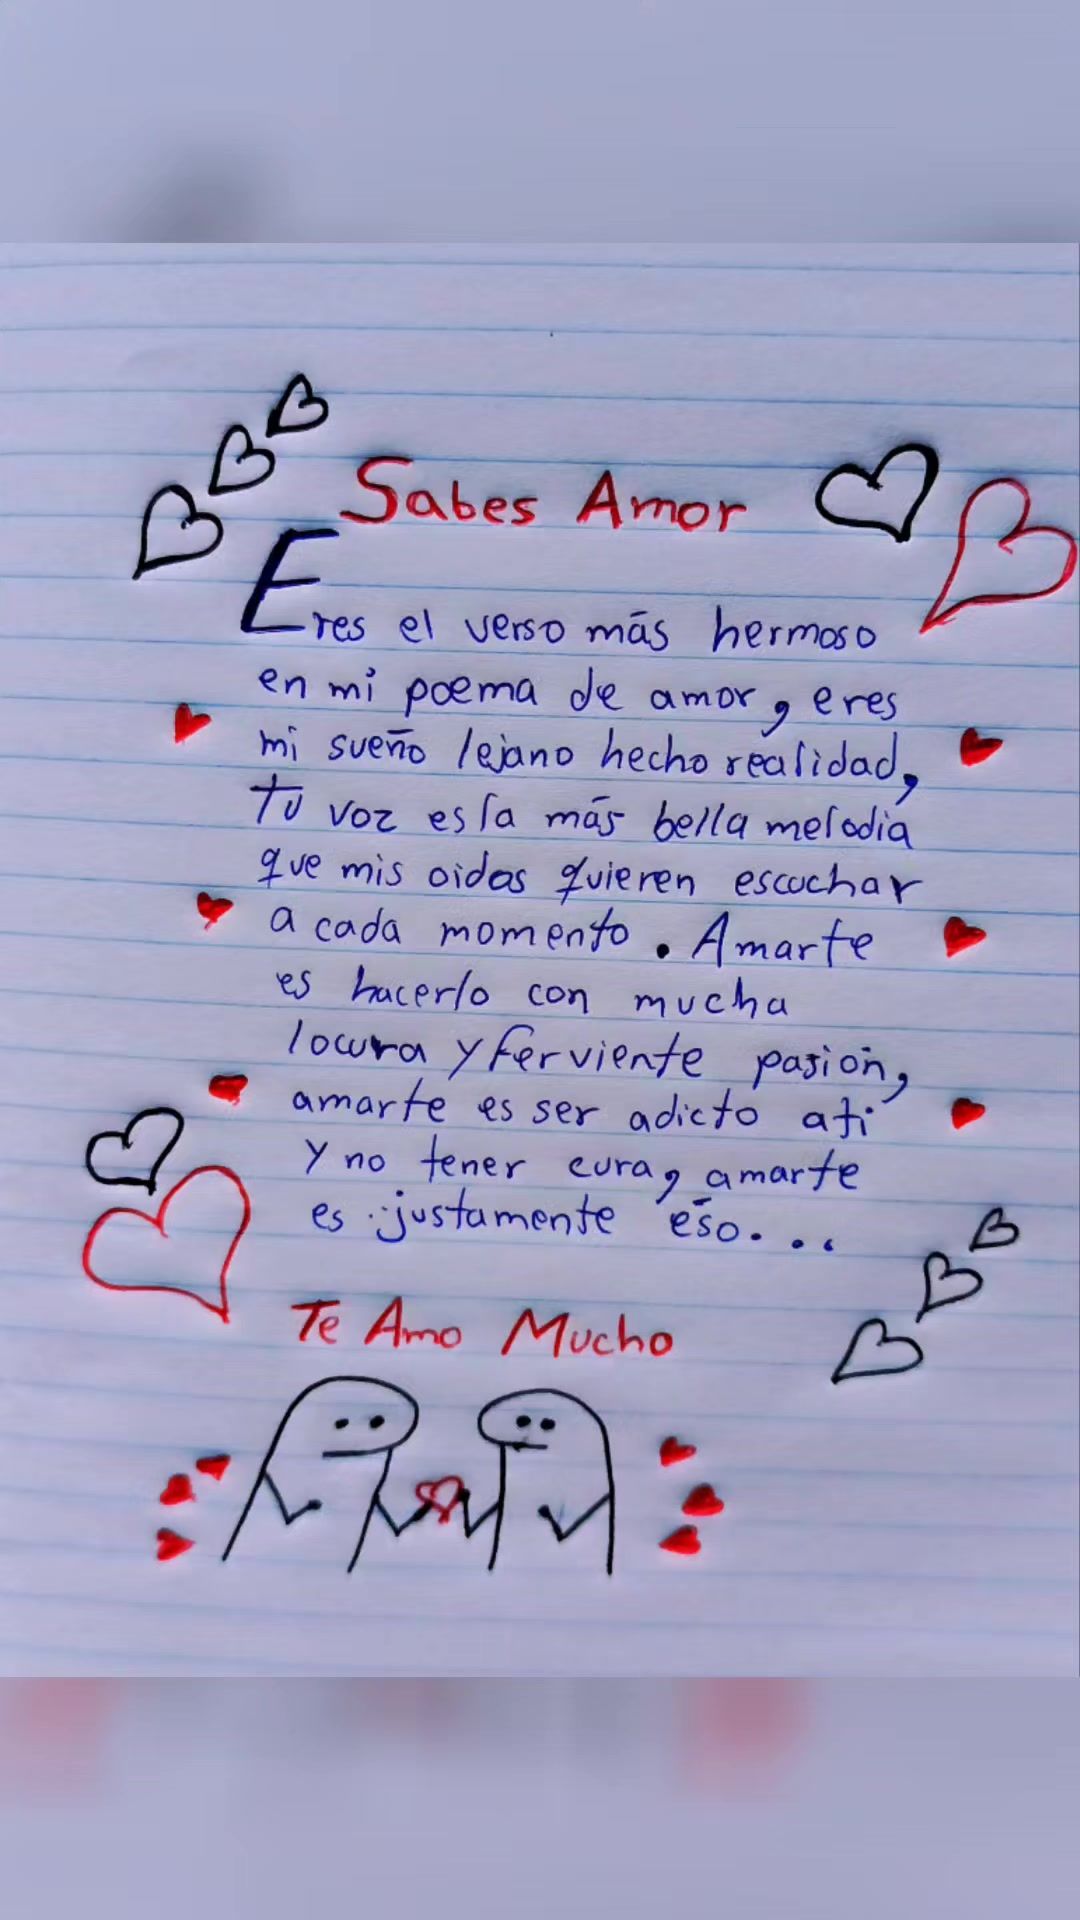 Sabes Amor
Eres el verso más hermoso
en mi poema de amor, eres
mi sueño lejano hecho realidad,
Tu voz es la más bella melodia
que mis oidos quieren escuchar
a cada momento. Amarte
es hacerlo con mucha
locura y ferviente pasión,
amarte es ser adicto a ti
Y no tener cura, amarte
es justamente eso...
Te Amo Mucho